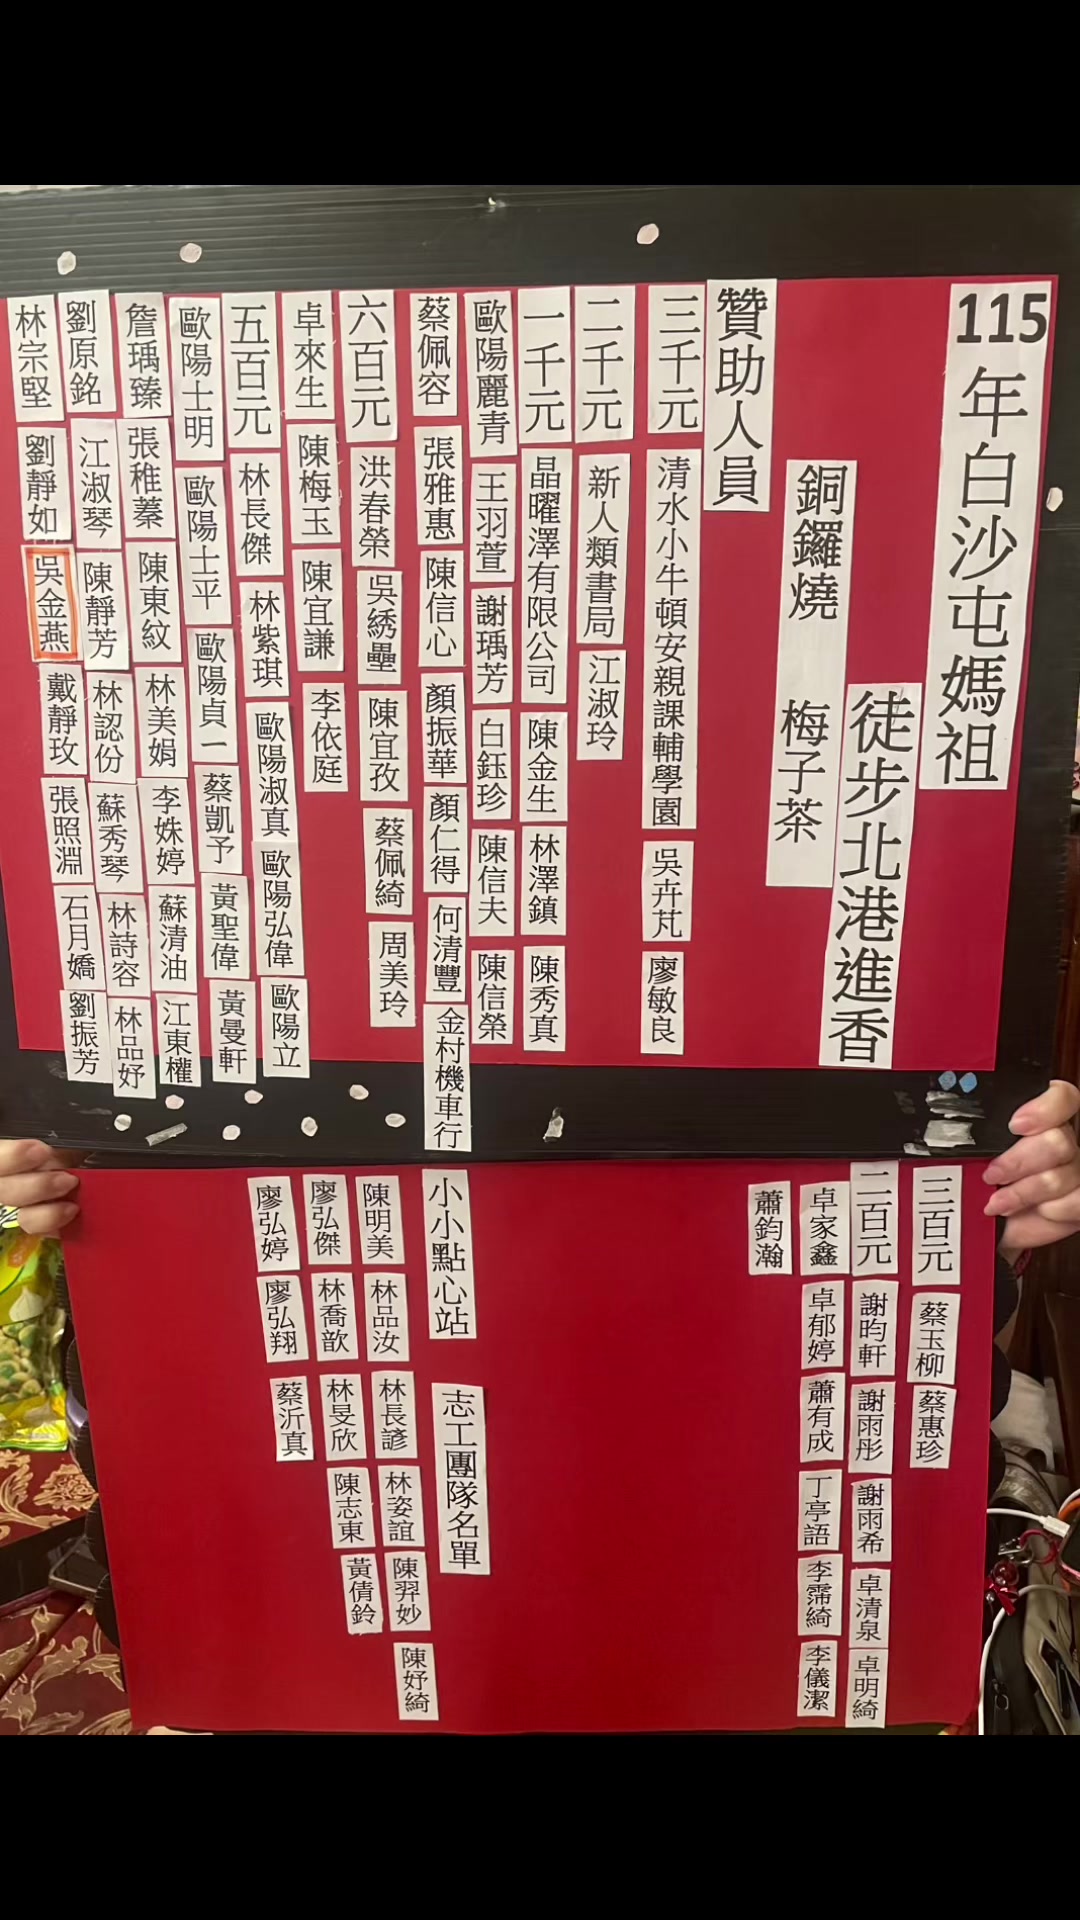 115年白沙屯媽祖
徒步北港進香
銅鑼燒 梅子茶
贊助人員
三千元 清水小牛頓安親課輔學園 吳卉芃 廖敏良
二千元 新人類書局 江淑玲
一千元 晶曜澤有限公司 陳金生 林澤鎮 陳秀真
歐陽麗青 王羽萱 謝瑀芳 白鈺珍 陳信夫 陳信榮
蔡佩容 張雅惠 陳信心 顏振華 顏仁得 何清豐 金村機車行
六百元 洪春榮 吳綉壘 陳宜孜 蔡佩綺 周美玲
卓來生 陳梅玉 陳宜謙 李依庭
五百元 林長傑 林紫琪 歐陽淑真 歐陽弘偉 歐陽立
歐陽士明 歐陽士平 歐陽貞一 蔡凱予 黃聖偉 黃曼軒
詹瑀臻 張稚蓁 陳東紋 林美娟 李姝婷 蘇清油 江東權
劉原銘 江淑琴 陳靜芳 林認份 蘇秀琴 林詩容 林品妤
林宗堅 劉靜如 吳金燕 戴靜玫 張照淵 石月嬌 劉振芳
三百元 蔡玉柳 蔡惠珍
二百元 謝昀軒 謝雨彤 謝雨希 卓清泉 卓明綺
卓家鑫 卓郁婷 蕭有成 丁亭語 李霈綺 李儀潔
蕭鈞瀚
小小點心站 志工團隊名單
陳明美 林品汝 林長諺 林姿誼 陳羿妙 陳妤綺
廖弘傑 林喬歆 林旻欣 陳志東 黃倩鈴
廖弘婷 廖弘翔 蔡沂真